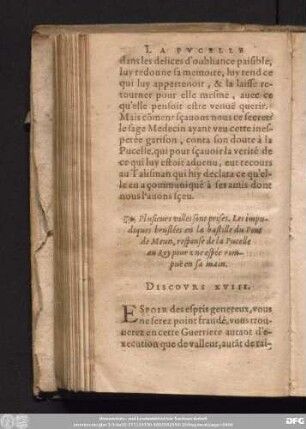 LA PVCELLE
dans les delices d'oubliance paisible,
luy redoune sa memoire, luy rend ce
qui luy appertenoit, & la laisse re-
tourner pour elle mesme, auec ce
qu'elle pensoit estre venuë querir.
Mais cõment sçauons nous ce secret?
le sage Medecin ayant veu cette ines-
perée garison, conta son doute à la
Pucelle, qui pour sçauoir la verité de
ce qui luy estoit aduenu, eut recours
au Talisman qui luy declara ce qu'el-
le en a communiqué à ses amis dont
nous l'auons sçeu.
Plusieurs villes sont prises. Les impu-
diques bruslées en la bastille du Pont
de Meun, response de la Pucelle
au Roy pour vne espée rom-
puë en sa main.
DISCOVRS XVIII.
ESPOIR des esprits genereux, vous
ne serez point fraudé, vous trou-
uerez en cette Guerriere autant d'e-
xecution que de valleur, autãt de rai-